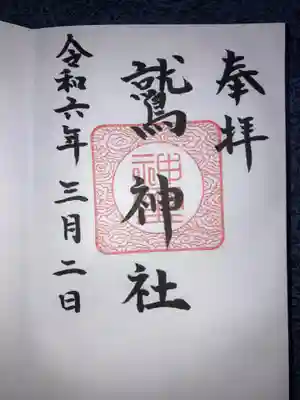 奉拝
鷲神社
令和六年 三月二日